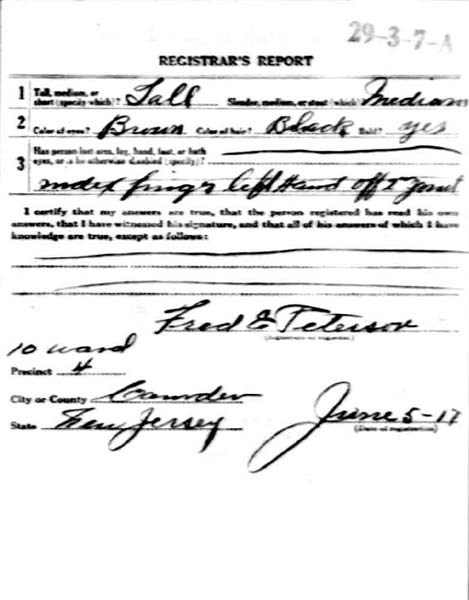 29-3-7-A
REGISTRAR'S REPORT
1 Tall, medium, or short (specify which)? Tall Slender, medium, or stout (which)? Medium
2 Color of eyes? Brown Color of hair? Black Bald? yes
3 Has person lost arm, leg, hand, foot, or both eyes, or is he otherwise disabled (specify)?
index fing'r left Hand off 2 Joint
I certify that my answers are true, that the person registered has read his own
answers, that I have witnessed his signature, and that all of his answers of which I have
knowledge are true, except as follows:
Fred E Peterson
(Signature of registrar)
10 ward
Precinct 4
City or County Camden
State New Jersey
June 5-17
(Date of registration)